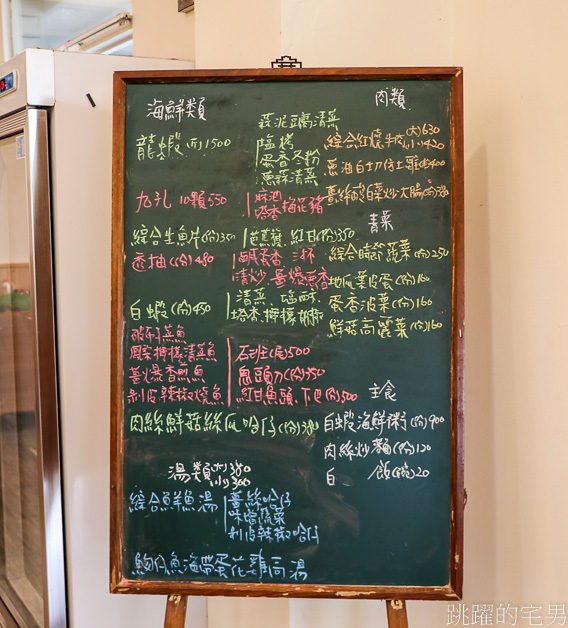 海鮮類
龍蝦(斤)1500
蒜泥豆腐清蒸
塩烤
蛋香冬粉
蔥蒜清蒸
九孔 10顆550
麻油
塔香梅花豬
綜合生魚片(份)350
芭蕉旗、紅甘(份)350
透抽(份)480
鹹蛋香、三杯
清炒、薑爆蔥香
白蝦(份)450
清蒸、塩酥
塔香、檸檬胡椒
破布子蒸魚
鳳梨檸檬清蒸魚
薑爆香煎魚
剝皮辣椒燒魚
石斑(尾)500
鬼頭刀(份)350
紅甘魚頭、下巴(份)500
肉絲鮮菇絲瓜哈仔(份)380
湯類 大)380
小)300
綜合鮮魚湯
薑絲哈仔
味噌蔬菜
剝皮辣椒哈仔
魩仔魚海帶蛋花雞高湯
肉類
綜合紅燒牛肉(大)630
(小)420
蔥油白切仿土雞(份)400
薑絲酸白菜炒大腸(份)380
青菜
綜合時節蔬菜(份)250
地瓜葉皮蛋(份)160
蛋香菠菜(份)160
鮮菇高麗菜(份)160
主食
白蝦海鮮粥(份)900
肉絲炒麵(份)120
白 飯(碗)20
跳躍的宅男